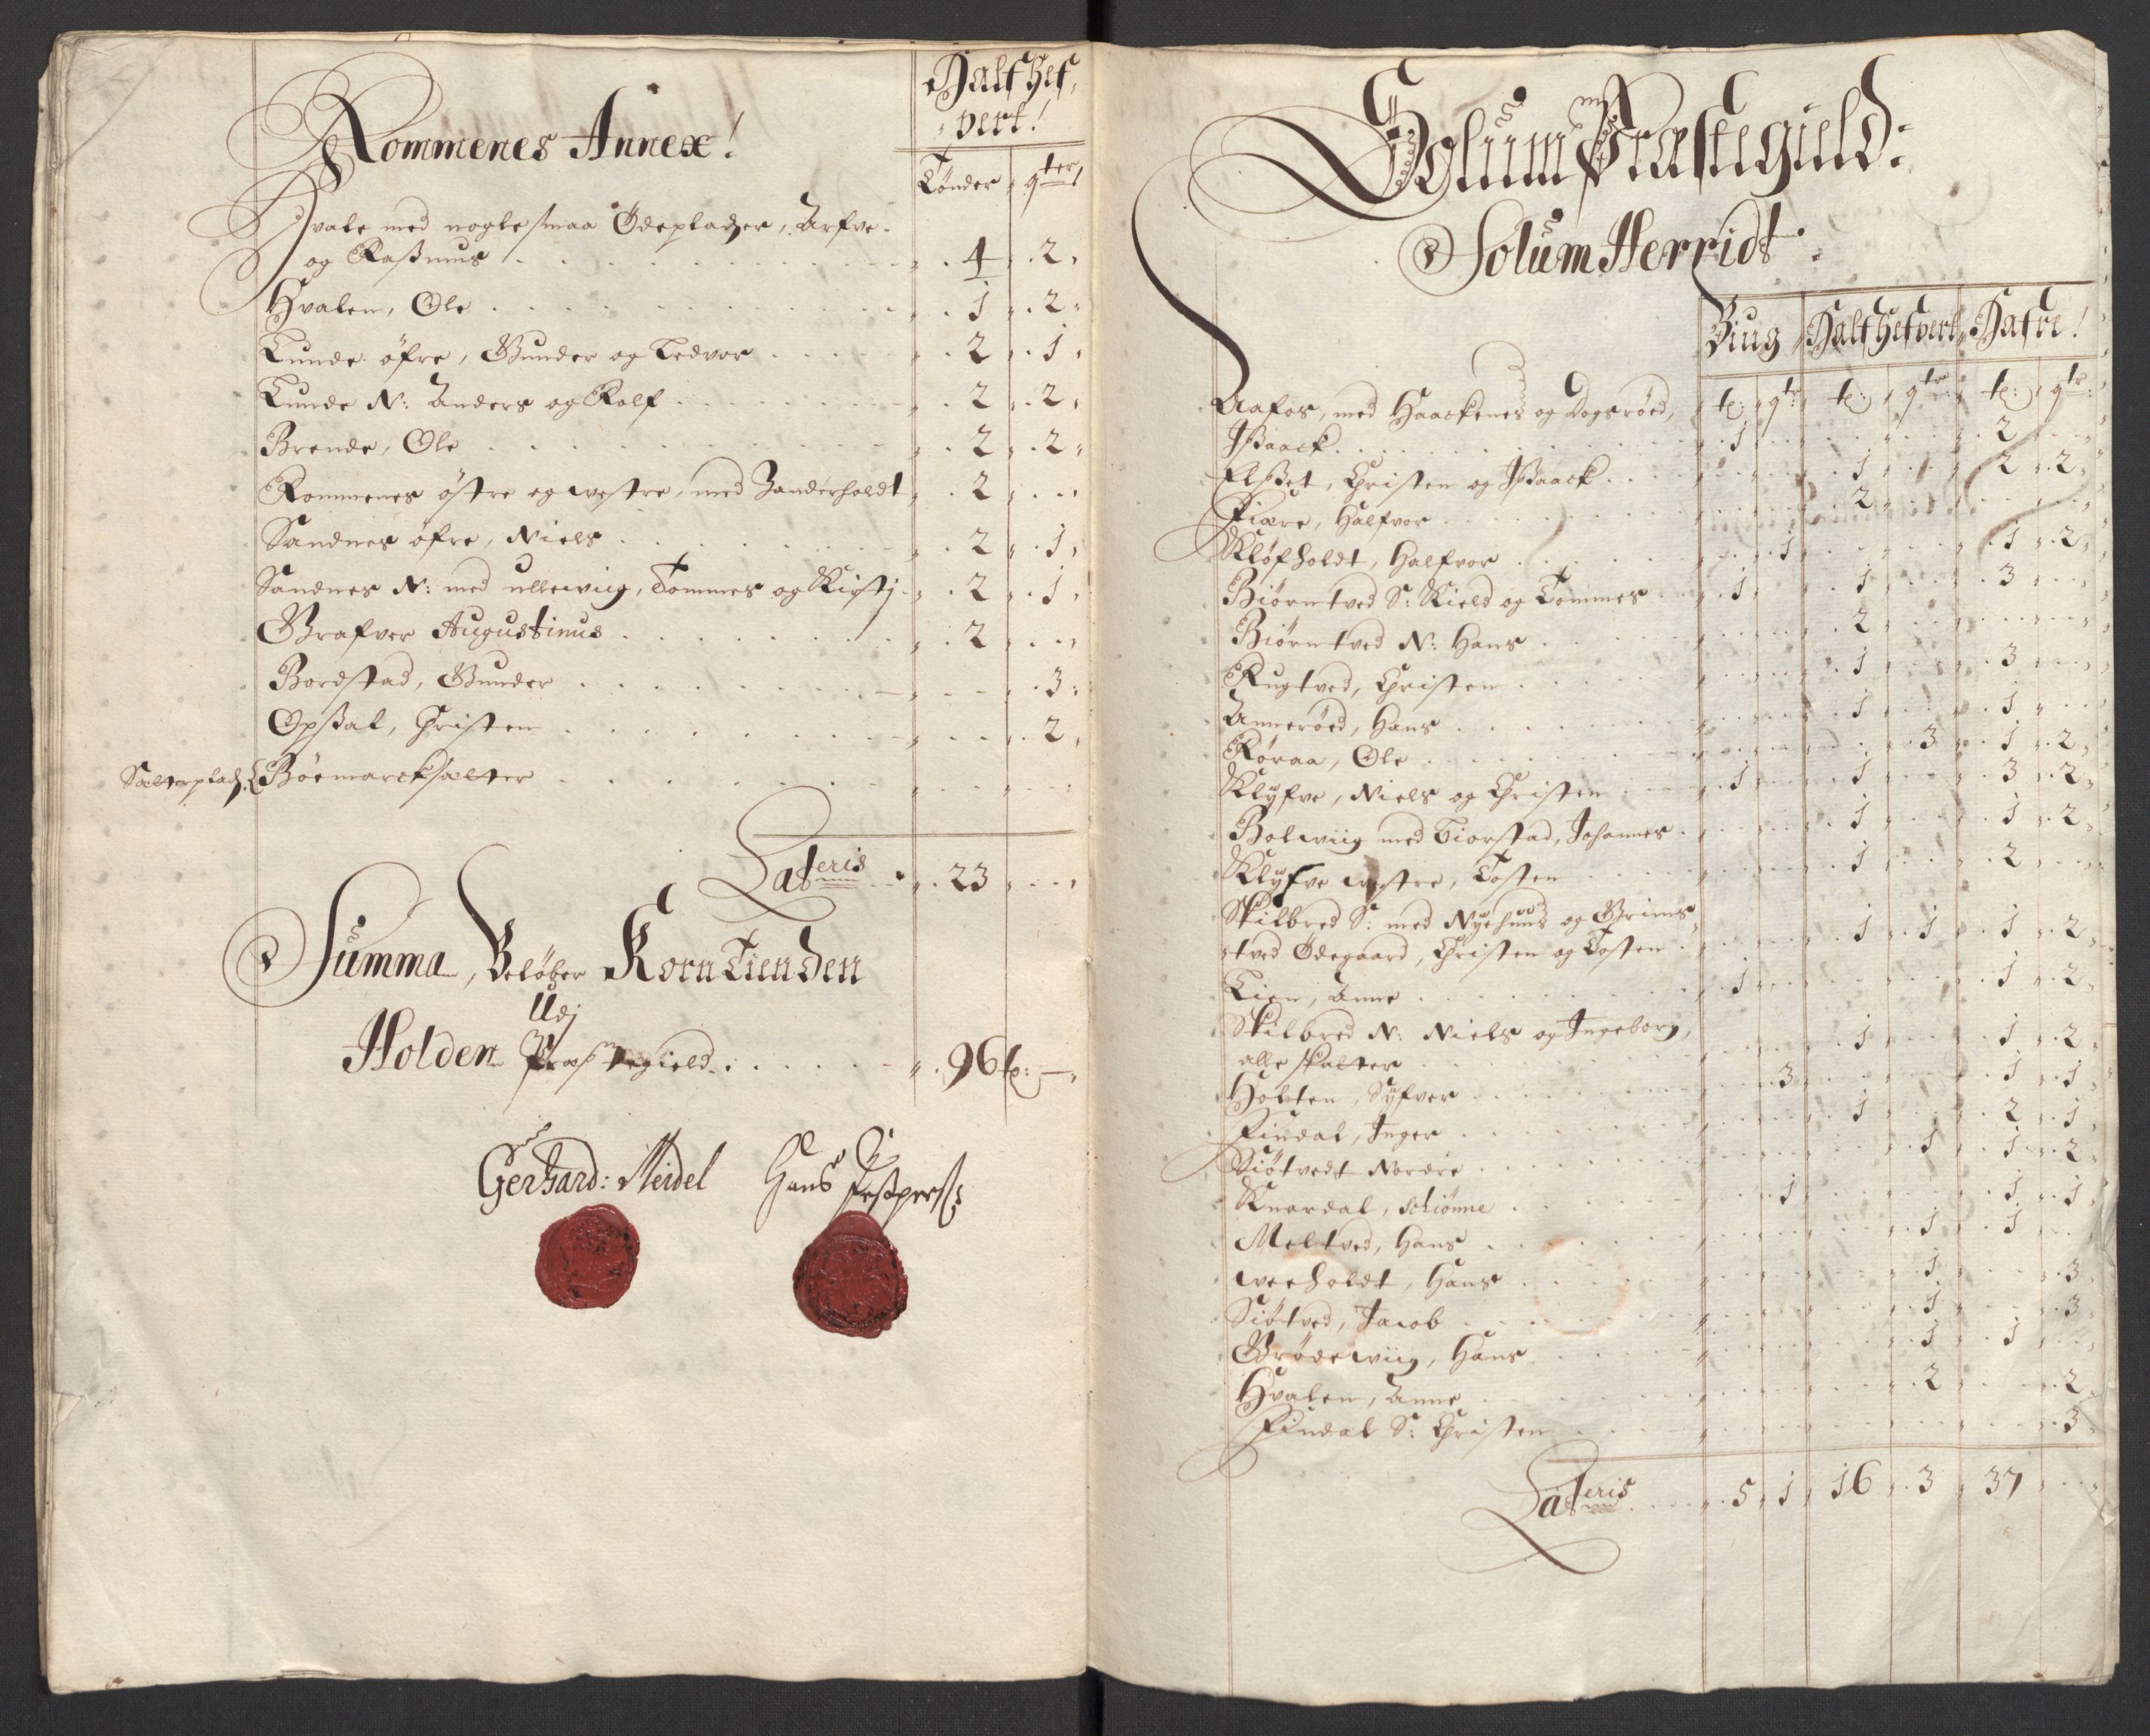 Rommenes Annex!
Half Hef,
vert!
Tønder qter
Hvale med nogle smaa Ødepladzer, Arfve
og Rasmus . 4 . 2
Hvalen, Ole . 1 . 2
Lunde øfre, Gunder og Tedvor . 2 . 1
Lunde N: Anders og Rolf . 2 . 2
Brende, Ole . 2 . 2
Rommenes østre og westre, med Zanderholdt . 2 . .
Sandnes øfre, Niels . 2 . 1
Sandnes N: med ullewiig, Tommes og Kirstj . 2 . 1
Grafver Augustinus . 2 . .
Bordstad, Gunder . . 3
Opsal, Christen . . 2
Sælterpladz. { Bøemarcksælter
Lateris . 23 . .
Summa, Beløber Korn Tienden
Udj
Holden Præstegield . . 96 t:
Gerhard: Meidel Hans
Solum Præstegield:
Solum Herridt
Biug Half Hefvert, Hafre!
t: qtr t: qtr t: qtr
Aafos, med Haackenes og Dogsrøed,
Isaack . 1 . . . 2 .
Elset, Christen og Isaack . . . 1 . 2 . 2
Fiære, Halfvor . . . 2 . . .
Kløfholdt, Halfvor . . 1 . . 1 . 2
Biørntved S: Kield og Tommes . 1 . 1 . 3 .
Biørntved N: Hans . . . 2 . . .
Rugtved, Christen . . . 1 . 3 .
Annerøed, Hans . . . 1 . 1 .
Røraa, Ole . . . . 3 . 1 . 2
Klyfve, Niels og Christen . 1 . 1 . 3 . 2
Bolwiig med Tiorstad, Johannes . . . 1 . 1 . 2
Klyfve westre, Tosten . . . 1 . 2 .
Skilbred S: med Nyehuus og Grims
tved Ødegaard, Christen og Tosten . . . 1 . 1 . 1 . 2
Lien, Anne . 1 . . . 1 . 2
Skilbred N: Niels og Ingeborg,
alle skatter . . . 1 . 1 . 2
Holten, Syfver . . 3 . . 1 . 1
Findal, Inger . . . 1 . 2 . 1
Siøtvedt Nordre . . . . 1 . 1 . 2
Knardal, schiønne . . 1 . . 1 . 1
Meltved, Hans . . . . 1 . 1 .
weeholdt, Hans . . . . 1 . . 3
Siøtved, Jacob . . . . 1 . . 3
Grødewiig, Hans . . . . 1 . 1 .
Hvalen, Anne . . . . 2 . . 2
Findal S: Christen . . . . . . 3
Lateris . . 5 . 1 . 16 . 3 . 37 . .